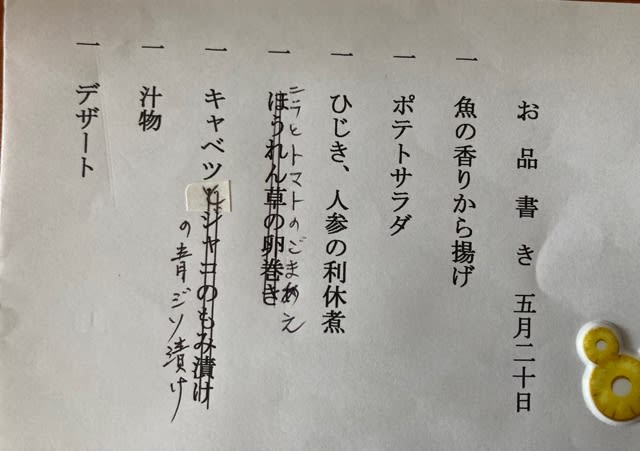 お品書き 五月二十日
一 魚の香りから揚げ
一 ポテトサラダ
一 ひじき、人参の利休煮
一 ほうれん草の卵巻き
ニラとトマトのごまあえ
一 キャベツとジャコのもみ漬け
の青ジソ漬け
一 汁物
一 デザート